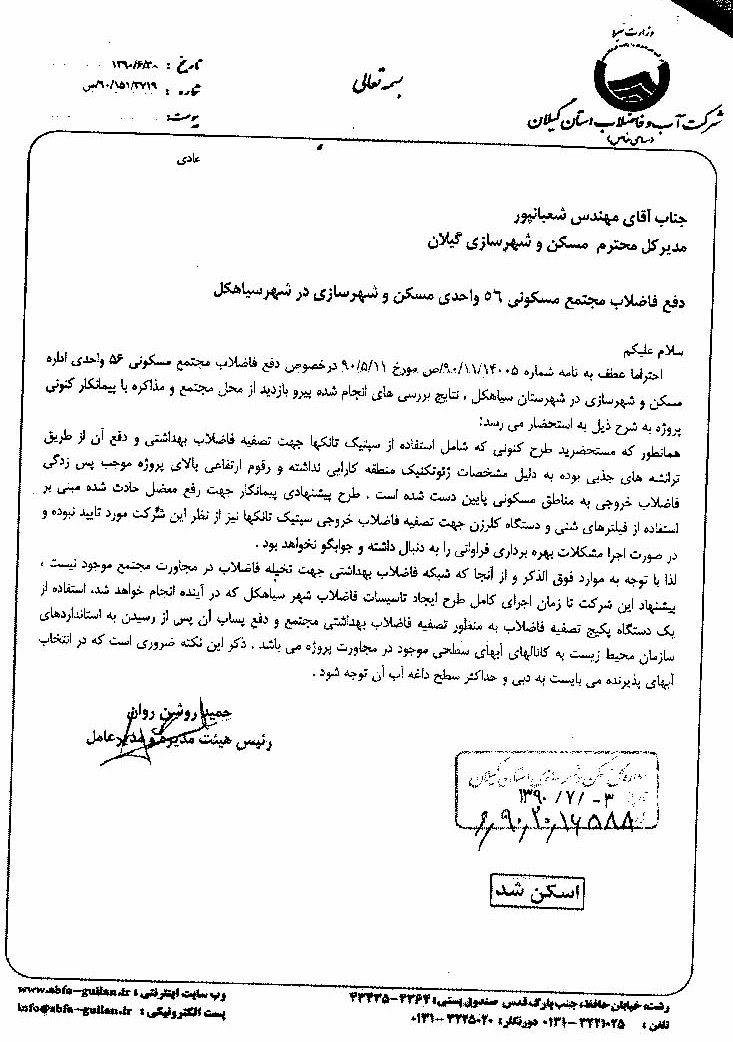 وزارت نیرو
شرکت آب و فاضلاب استان گیلان
(سهامی خاص)
بسمه تعالی
تاریخ : ۱۳۹۰/۶/۳۰
شماره : ۹۰/۱۵۱/۳۷۱۹/ص
پیوست:
عادی
جناب آقای مهندس شعبانپور
مدیرکل محترم مسکن و شهرسازی گیلان
دفع فاضلاب مجتمع مسکونی ۵۶ واحدی مسکن و شهرسازی در شهر سیاهکل
سلام علیکم
احتراما عطف به نامه شماره ۹۰/۱۱/۱۴۰۰۵/ص مورخ ۹۰/۵/۱۱ درخصوص دفع فاضلاب مجتمع مسکونی ۵۶ واحدی اداره
مسکن و شهرسازی در شهرستان سیاهکل ، نتایج بررسی های انجام شده پیرو بازدید از محل مجتمع و مذاکره با پیمانکار کنونی
پروژه به شرح ذیل به استحضار می رسد:
همانطور که مستحضرید طرح کنونی که شامل استفاده از سپتیک تانکها جهت تصفیه فاضلاب بهداشتی و دفع آن از طریق
ترانشه های جذبی بوده به دلیل مشخصات ژئوتکنیک منطقه کارایی نداشته و رقوم ارتفاعی بالای پروژه موجب پس زدگی
فاضلاب خروجی به مناطق مسکونی پایین دست شده است . طرح پیشنهادی پیمانکار جهت رفع معضل حادث شده مبنی بر
استفاده از فیلترهای شنی و دستگاه کلرزن جهت تصفیه فاضلاب خروجی سپتیک تانکها نیز از نظر این شرکت مورد تایید نبوده و
در صورت اجرا مشکلات بهره برداری فراوانی را به دنبال داشته و جوابگو نخواهد بود .
لذا با توجه به موارد فوق الذکر و از آنجا که شبکه فاضلاب بهداشتی جهت تخیله فاضلاب در مجاورت مجتمع موجود نیست ،
پیشنهاد این شرکت تا زمان اجرای کامل طرح ایجاد تاسیسات فاضلاب شهر سیاهکل که در آینده انجام خواهد شد، استفاده از
یک دستگاه پکیج تصفیه فاضلاب به منظور تصفیه فاضلاب بهداشتی مجتمع و دفع پساب آن پس از رسیدن به استانداردهای
سازمان محیط زیست به کانالهای آبهای سطحی موجود در مجاورت پروژه می باشد . ذکر این نکته ضروری است که در انتخاب
آبهای پذیرنده می بایست به دبی و حداکثر سطح داغه آب آن توجه شود .
حمید روشن روان
رئیس هیئت مدیره و مدیرعامل
اداره کل مسکن و شهرسازی استان گیلان
۱۳۹۰ /۷/ -۳
۹۰,۲۰,۱۶۵۸۸
اسکن شد
رشت، خیابان حافظ، جنب پارک قدس صندوق پستی: ۳۳۶۴-۴۳۴۳۵
تلفن : ۳۲۲۱۰۲۵ -۰۱۳۱ دورنگار: ۳۲۲۵۰۲۰ -۰۱۳۱
وب سایت اینترنتی : www.abfa-guilan.ir
پست الکترونیکی : info@abfa-guilan.ir